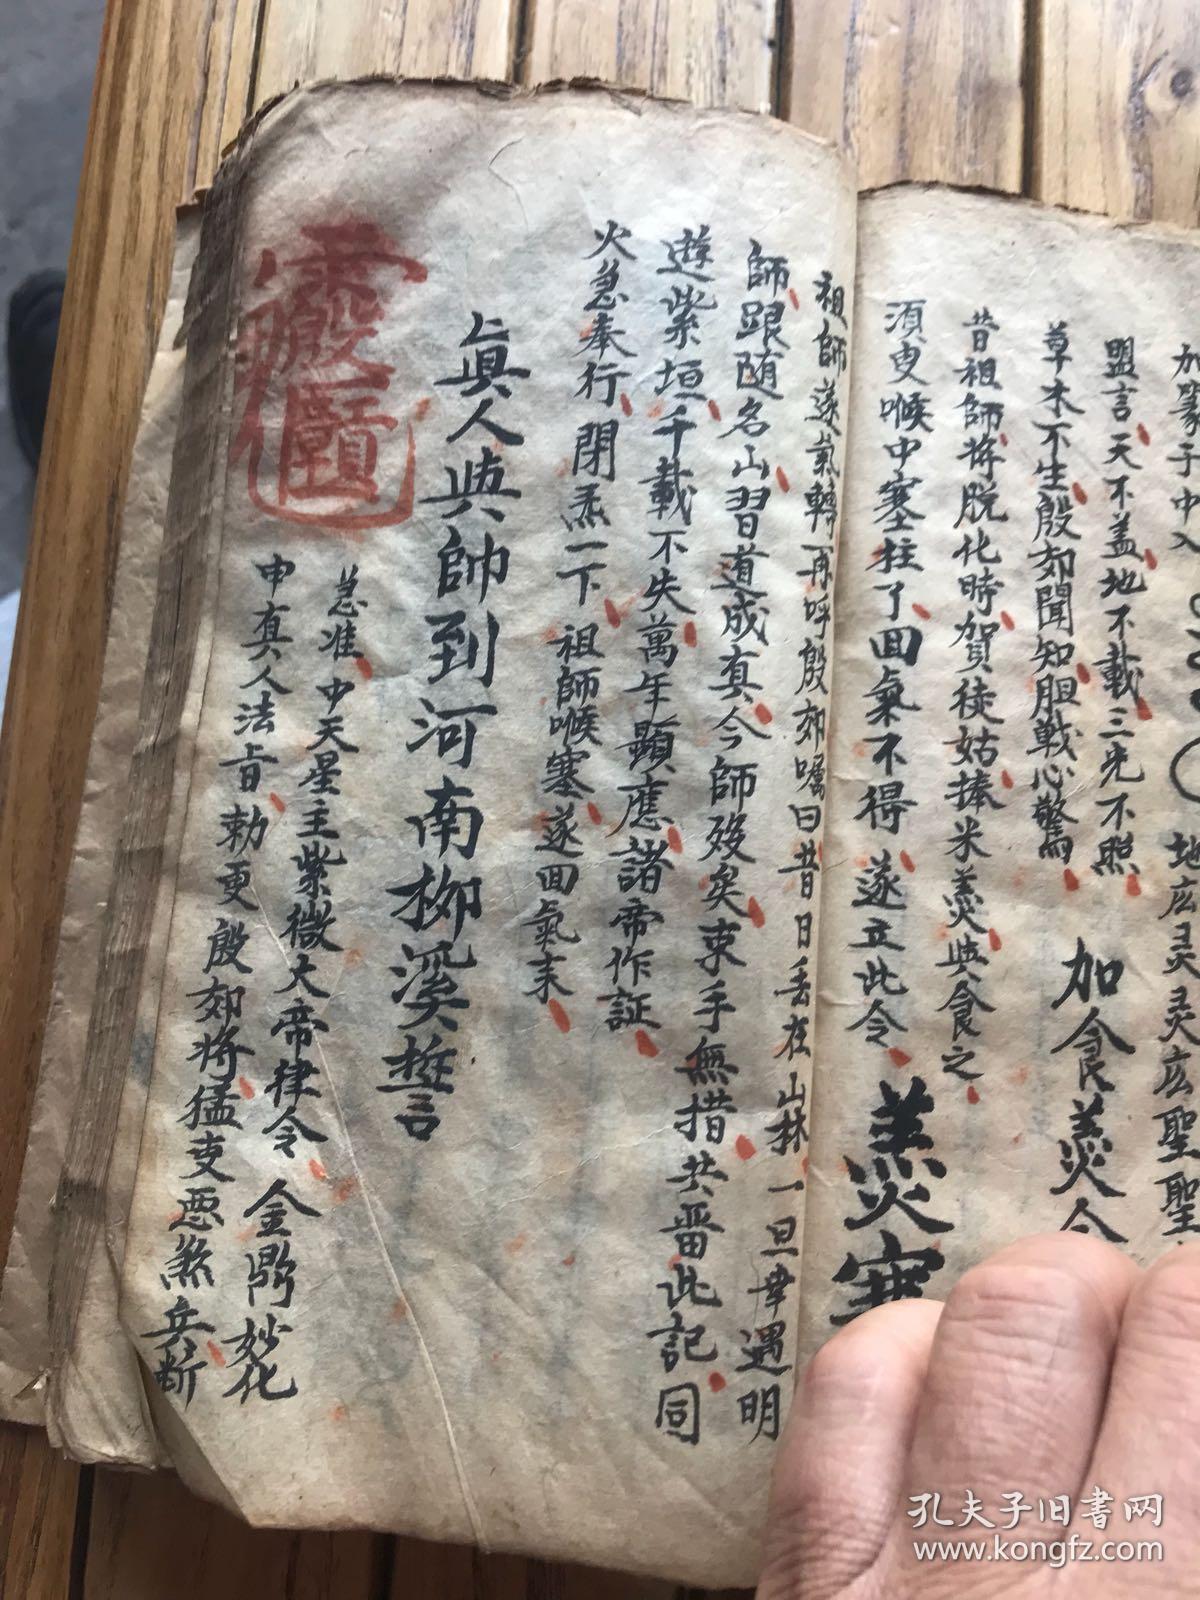 加篆于中入
地広灵灵広聖聖
盟言天不盖地不載三光不照
草木不生殷郊聞知胆戰心驚 加食羹令
昔祖師將脱化時賀徒姑捧米羹與食之
須臾喉中塞柱了回氣不得遂立此令 羹塞
祖師遂氣轉再呼殷郊囑曰昔日丢在山林一旦幸遇明
師跟随名山習道成真今師歿矣束手無措共畱此記同
遊紫垣千載不失萬年顯應諸帝作証
火急奉行閉炁一下祖師喉塞遂回氣末
真人與帥到河南柳溪誓
急准中天星主紫微大帝律令金鼎妙化
申真人法旨勅更殷郊將猛吏恶煞兵斯
孔夫子旧書网
www.kongfz.com